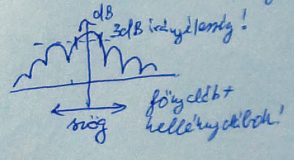 dB
3dB irányélesség!
szög
főnyaláb +
melléknyalábok!